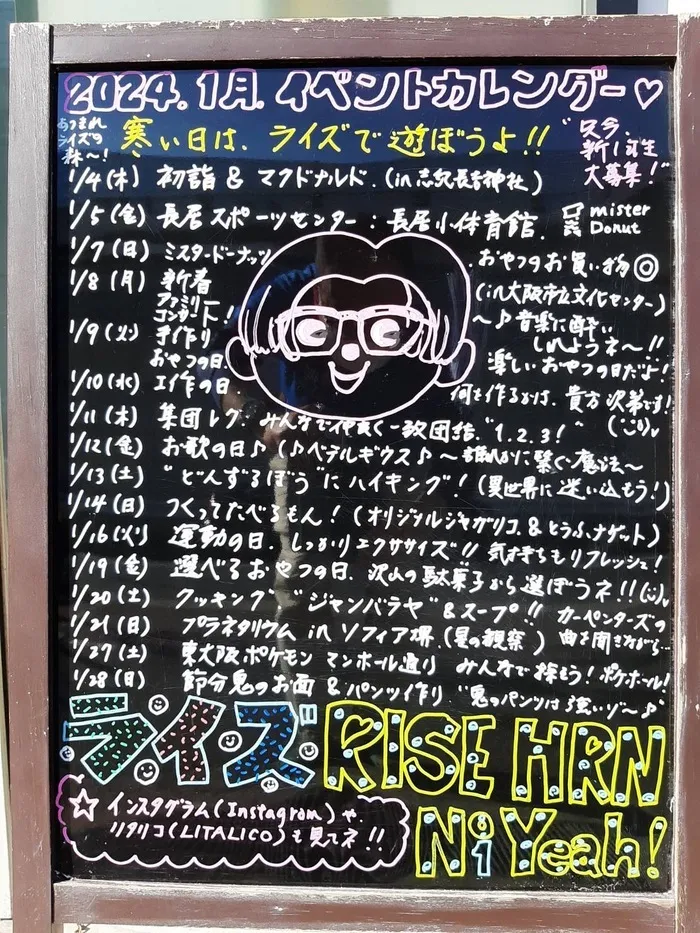 2024.1月.イベントカレンダー♡
あつまれ
ライズの
森〜!
寒い日は、ライズで遊ぼうよ!!
"只今、
新1年生
大募集!"
1/4(木) 初詣 & マクドナルド.(in 志紀長吉神社)
1/5(金) 長居スポーツセンター:長居小体育館.
mister
Donut
1/7(日) ミスタードーナッツ おやつのお買い物◎
1/8(月) 新春
ファミリー
コンサート!
(in大阪市立文化センター)
〜♪音楽に酔い
しれようネ〜!!
1/9(火) 手作り
おやつの日.
楽しいおやつの日だよ!
1/10(水) 工作の日 何を作るかは、貴方次第です!
1/11(木) 集団レク.みんなで仲良く一致団結."1.2.3!"
1/12(金) お歌の日♪(♪ベテルギウス♪〜誰かに繋ぐ魔法〜
1/13(土) "どんずるぼう"にハイキング!(異世界に迷い込もう!)
1/14(日) つくってたべるもん!(オリジナルジャガリコ.&とうふナゲット)
1/16(火) 運動の日.しっかりエクササイズ!!気持ちもリフレッシュ!
1/19(金) 選べるおやつの日.沢山の駄菓子から選ぼうネ!!
1/20(土) クッキング "ジャンバラヤ"&スープ!! カーペンターズの
曲を聞きながら…
1/21(日) プラネタリウム in ソフィア堺.(星の観察)
1/27(土) 東大阪ポケモン マンホール巡り みんなで探そう!ポケホール!
1/28(日) 節分鬼のお面 & パンツ作り "鬼のパンツは強いゾ〜♪"
ライズ RISE HRN
No1 Yeah!
☆インスタグラム(Instagram)や
リタリコ(LITALICO)も見てネ!!